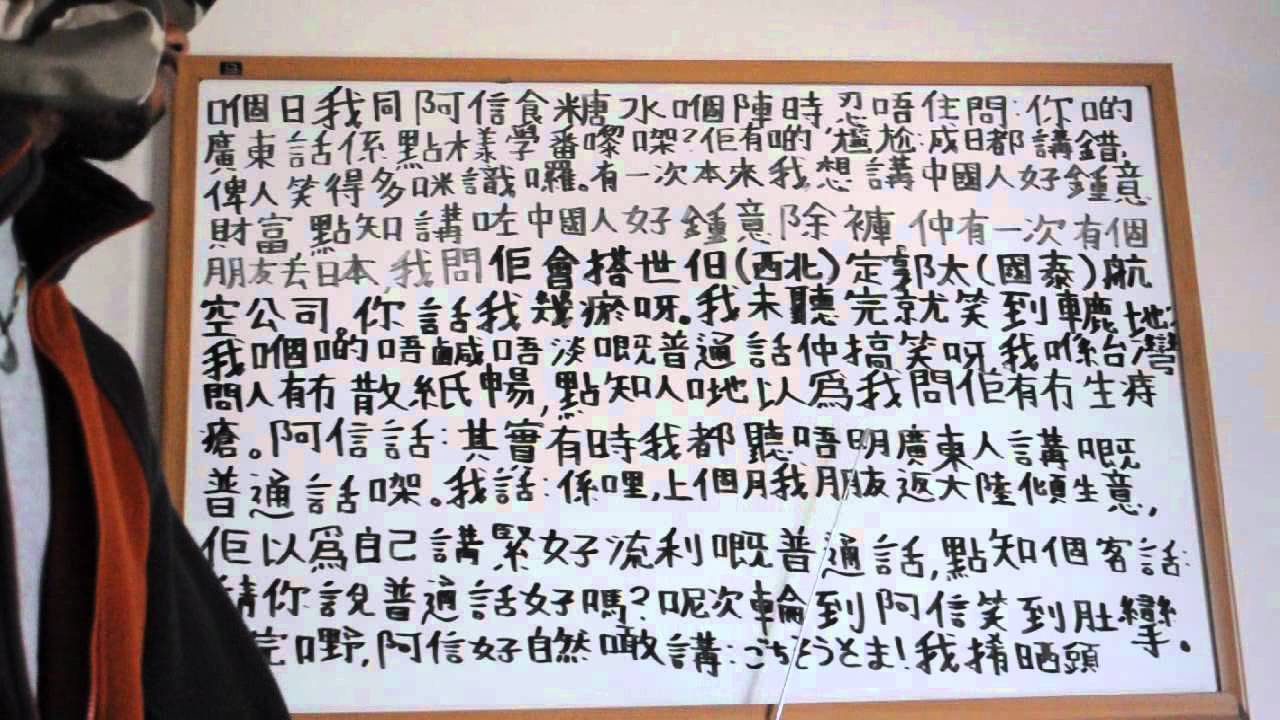 嗰日我同阿信食糖水嗰陣時忍唔住問:你啲
廣東話係點樣學番嚟㗎?佢有啲尷尬:成日都講錯,
俾人笑得多咪識囉。有一次本來我想講中國人好鍾意
財富,點知講咗中國人好鍾意除褲 仲有一次有個
朋友去日本,我問佢會搭世伯(西北)定郭太(國泰)航
空公司,你話我幾瘀呀。我未聽完就笑到轆地:
我嗰啲唔鹹唔淡嘅普通話仲搞笑呀,我喺台灣
問人有冇散紙暢,點知人哋以為我問佢有冇生痔
瘡。阿信話:其實有時我都聽唔明廣東人講嘅
普通話㗎。我話:係哩,上個月我朋友返大陸傾生意,
佢以為自己講緊好流利嘅普通話,點知個客話:
請你說普通話好嗎?呢次輪到阿信笑到肚攣
完嘢,阿信好自然噉講:ごちそうさま!我捎晒頭
手。